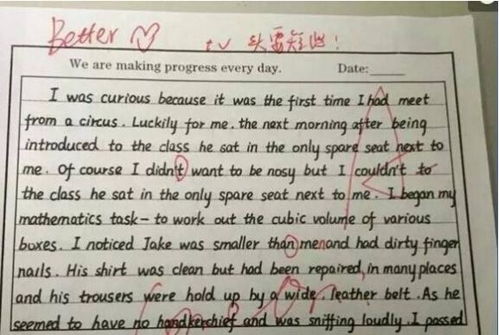 Better
tv 头重短些!
We are making progress every day. Date:
I was curious because it was the first time I had meet
from a circus. Luckily for me, the next morning after being
introduced to the class he sat in the only spare seat next to
me. Of course I didn't want to be nosy but I couldn't to
the class he sat in the only spare seat next to me. I began my
mathematics task - to work out the cubic volume of various
boxes. I noticed Jake was smaller than men and had dirty finger
nails. His shirt was clean but had been repaired, in many places
and his trousers were hold up by a wide, leather belt. As he
seemed to have no handkerchief and was sniffing loudly. I passed